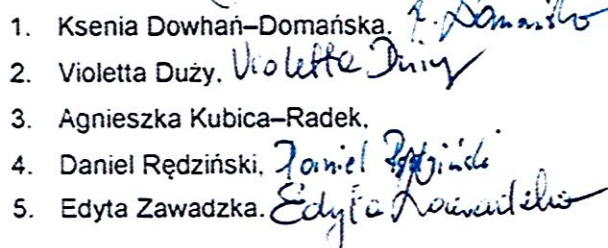 1. Ksenia Dowhań–Domańska. K. Domańska
2. Violetta Duży, Violetta Duży
3. Agnieszka Kubica–Radek,
4. Daniel Rędziński, Daniel Rędziński
5. Edyta Zawadzka. Edyta Zawadzka